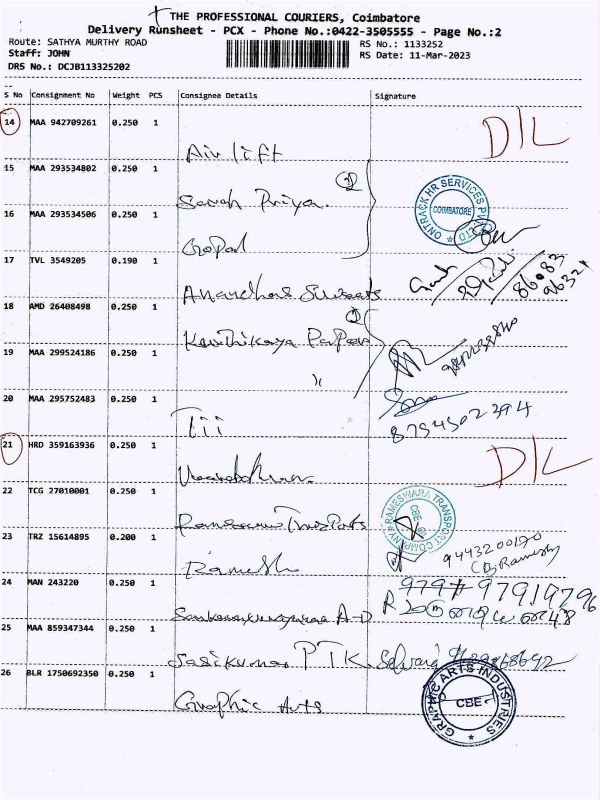 THE PROFESSIONAL COURIERS, Coimbatore
Delivery Runsheet - PCX - Phone No.:0422-3505555 - Page No.:2
Route: SATHYA MURTHY ROAD RS No.: 1133252
Staff: JOHN RS Date: 11-Mar-2023
DRS No.: DCJB113325202
S No Consignment No Weight PCS Consignee Details Signature
14 MAA 942709261 0.250 1
Air lift D/L
15 MAA 293534802 0.250 1
Sarah Priya. ②
ONTRACK HR SERVICES PVT LTD COIMBATORE
16 MAA 293534506 0.250 1
Gopal
17 TVL 3549205 0.190 1
Anandhas Sweets
86083
96321
18 AMD 26408498 0.250 1
Karthikaya Papers ②
19 MAA 299524186 0.250 1
"
20 MAA 295752483 0.250 1
Tii
8754502394
21 HRD 359163936 0.250 1
D/L
22 TCG 27010001 0.250 1
RAMESWARA TRANSPORT COMPANY CBE
23 TRZ 15614895 0.200 1
Ramesh
9443200190
Ramesh
24 MAN 243220 0.250 1
25 MAA 859347344 0.250 1
Sasikumar PTK
26 BLR 1750692350 0.250 1
Graphic Arts
GRAPHIC ARTS INDUSTRIES CBE